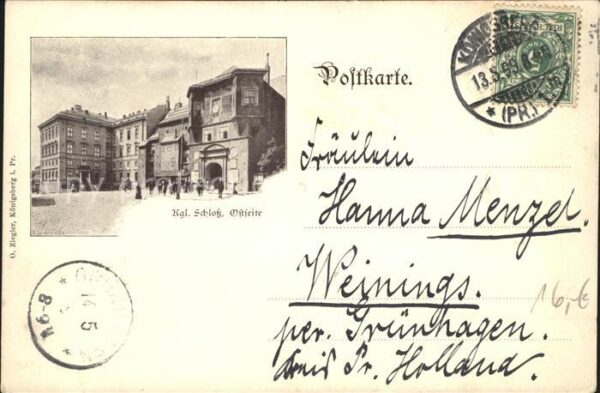 Postkarte.
KÖNIGSBERG
13.5.99
(PR.)
Kgl. Schloß, Ostseite
O. Ziegler, Königsberg i. Pr.
Fräulein
Hanna Menzel.
Weinings.
per. Grünhagen.
Kreis Pr. Holland.
16,-€
14 5
8-9V